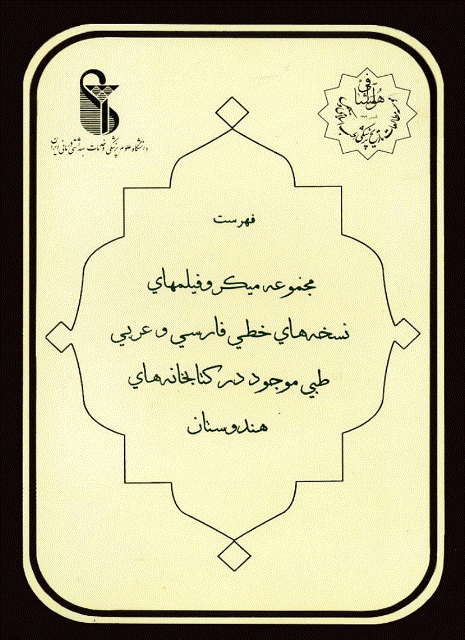 هو الشافی
دانشگاه علوم پزشکی و خدمات بهداشتی درمانی ایران
فهرست
مجموعه میکروفیلمهای
نسخه‌های خطی فارسی و عربی
طبی موجود در کتابخانه‌های
هندوستان